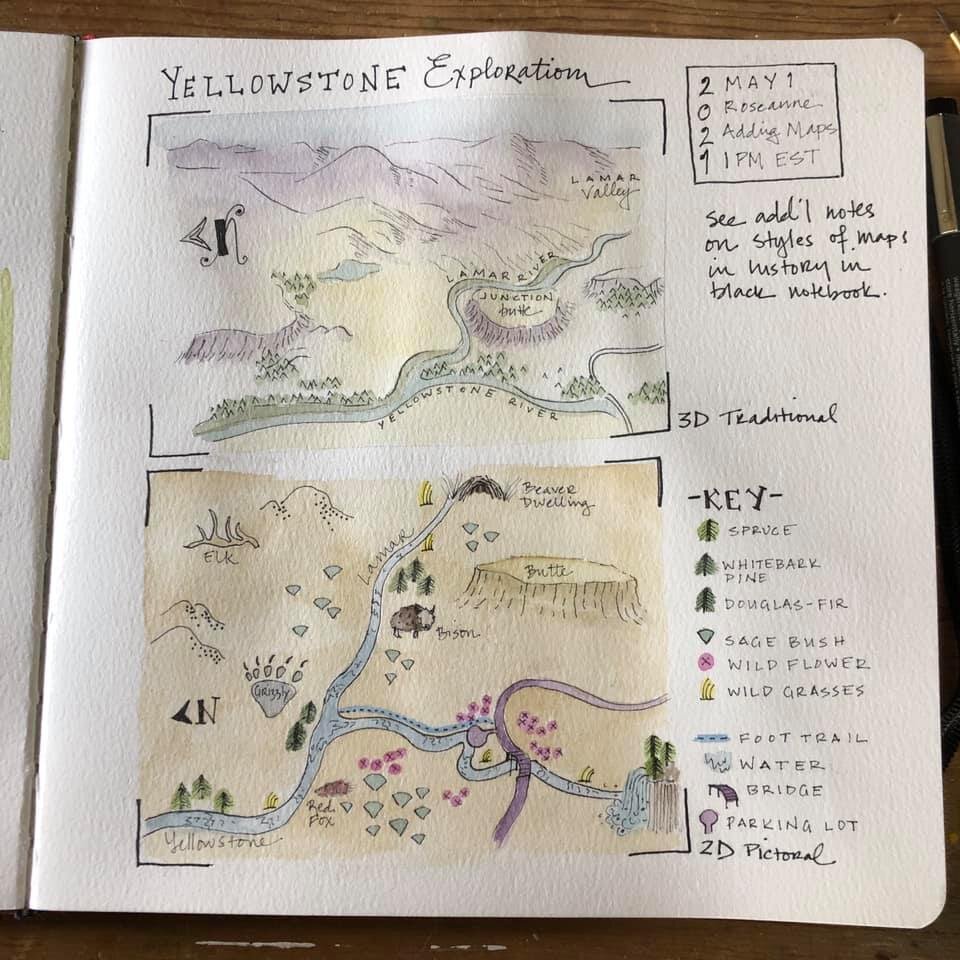 YELLOWSTONE Exploration
2 MAY 1
0 Roseanne
2 Adding Maps
1 1 PM EST
see add'l notes
on styles of maps
in history in
black notebook.
LAMAR
Valley
N
LAMAR RIVER
JUNCTION
butte
YELLOWSTONE RIVER
3D Traditional
Beaver
Dwelling
ELK
Lamar
Butte
Bison
Grizzly
N
Red
Fox
Yellowstone
-KEY-
SPRUCE
WHITEBARK
PINE
DOUGLAS-FIR
SAGE BUSH
WILD FLOWER
WILD GRASSES
FOOT TRAIL
WATER
BRIDGE
PARKING LOT
2D Pictoral